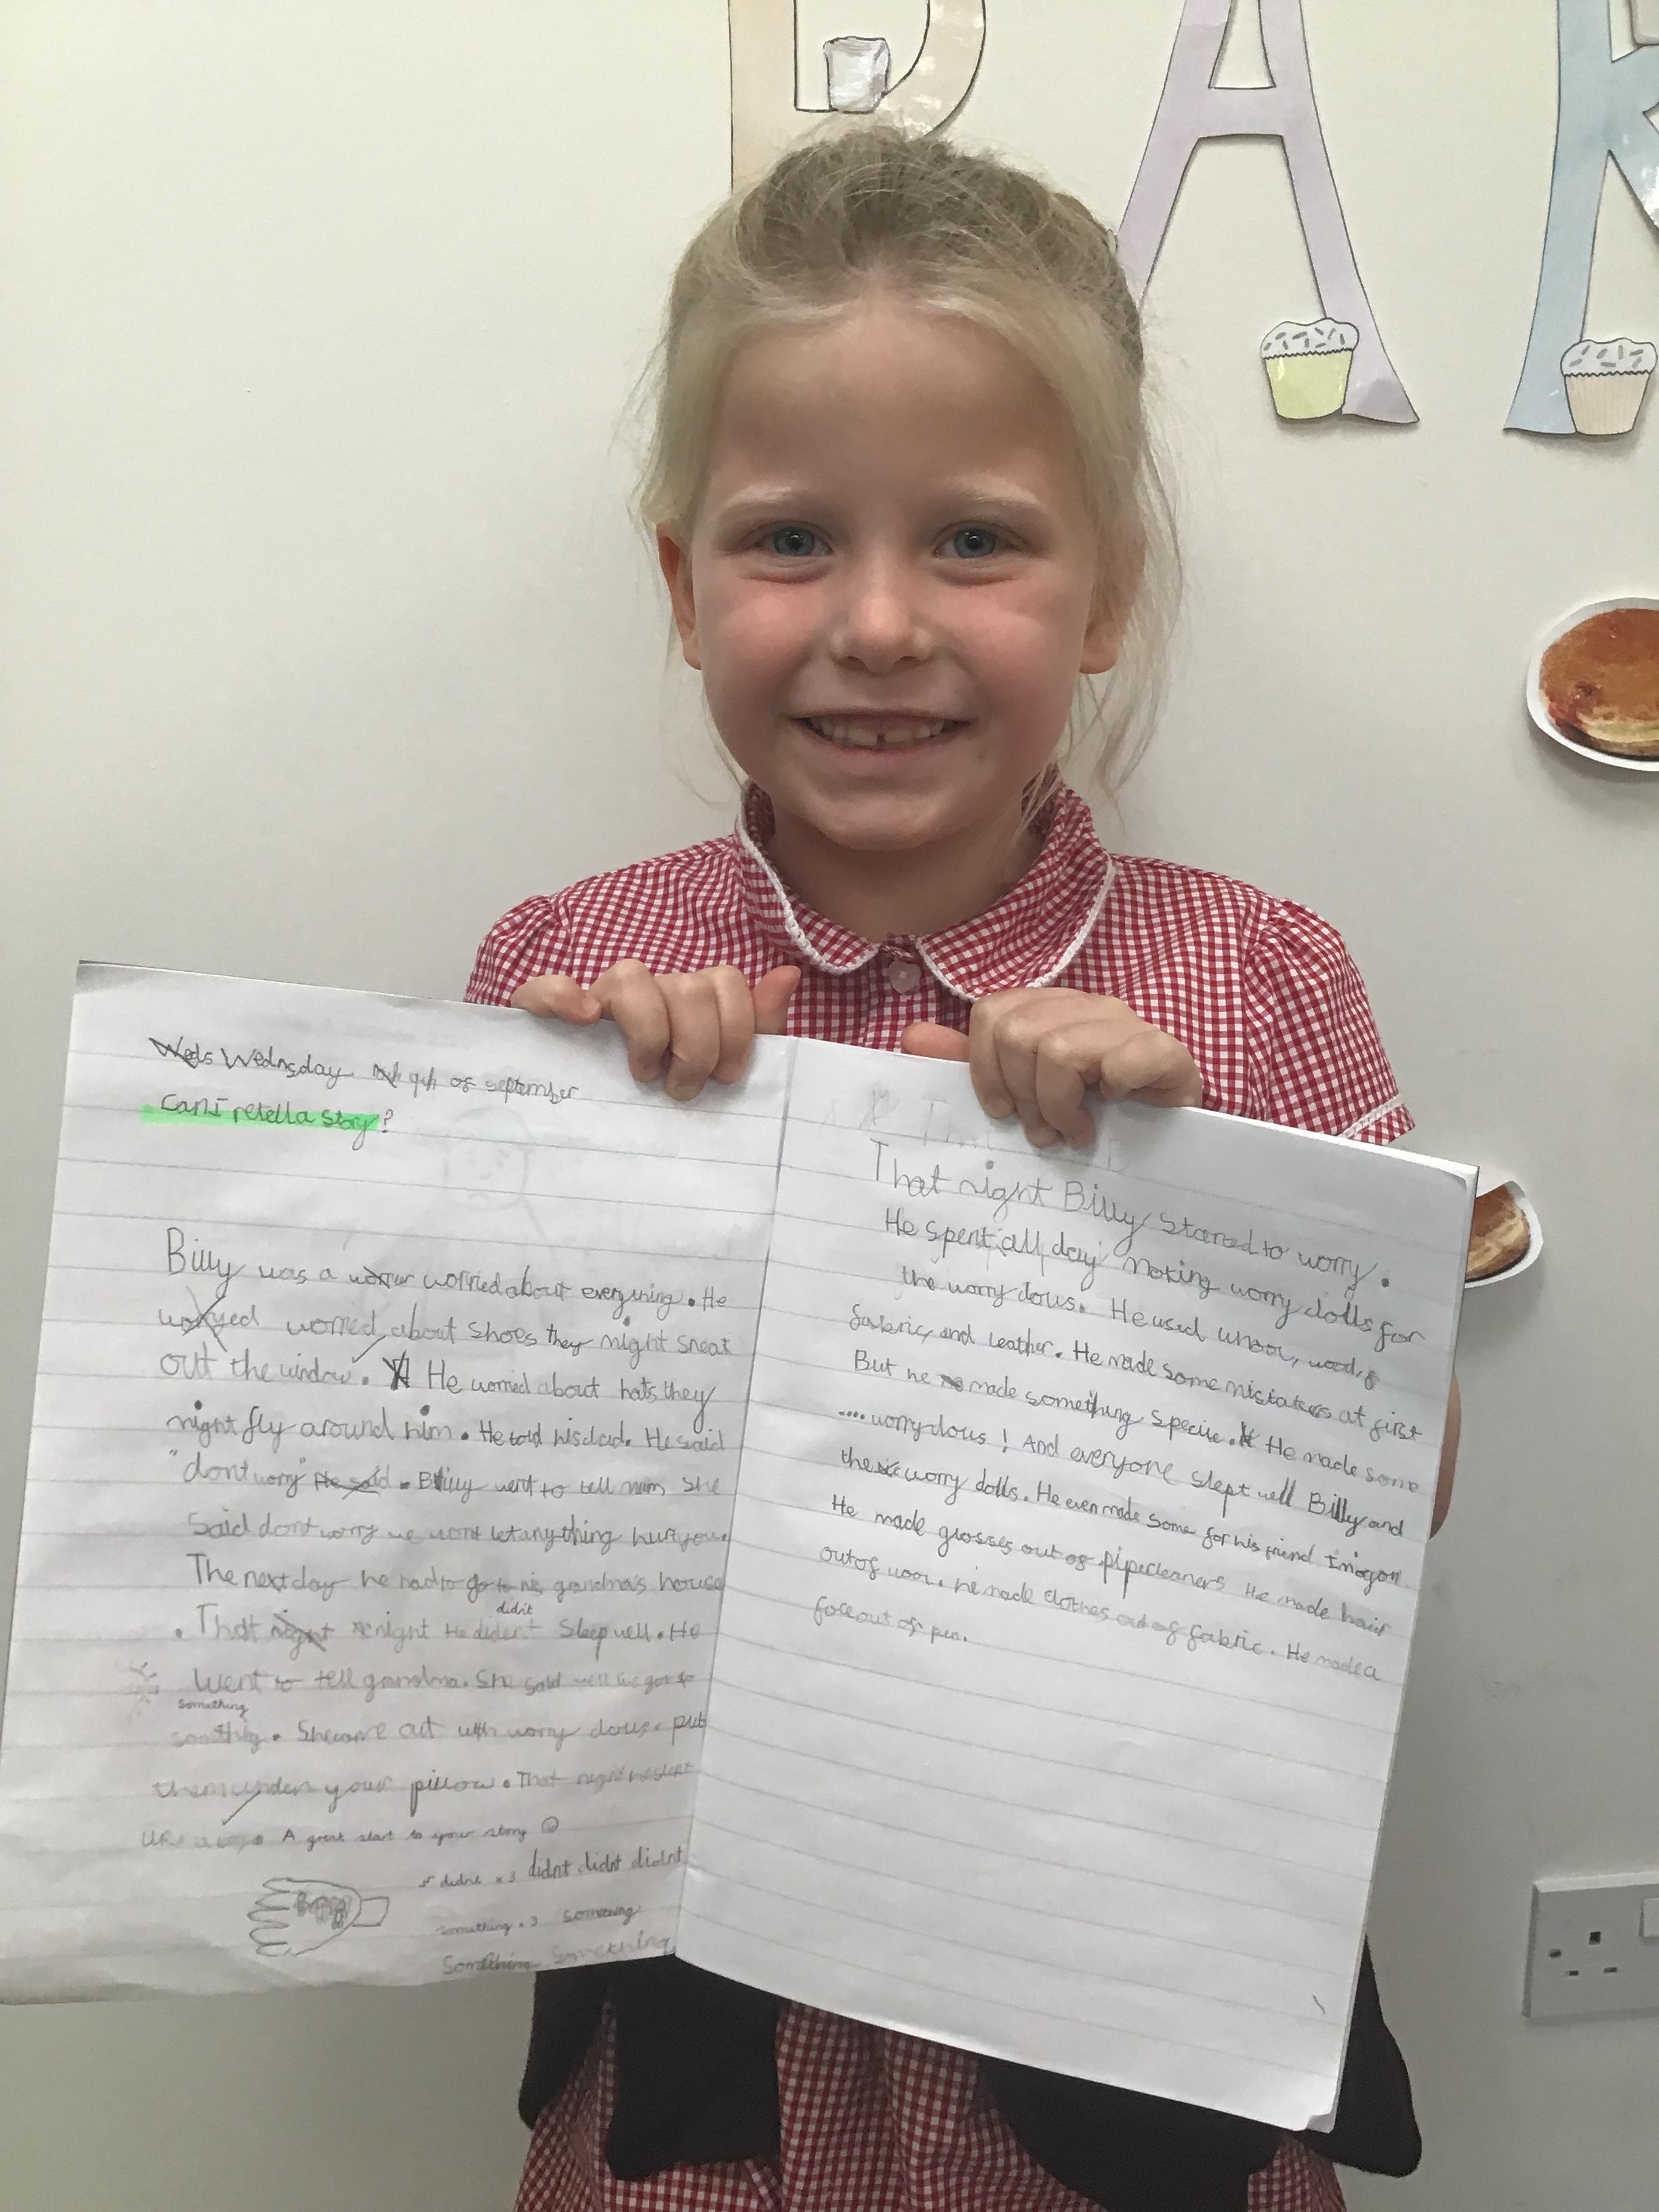 B A R
Weds Wednsday 9th of september
can I retell a story?
Billy was a worrier worried about everything. He
worryed worried about shoes they might sneak
out the window. He worried about hats they
might fly around him. He told his dad. He said
"dont worry" He said. Billy went to tell mum she
said dont worry we wont let anything hurt you.
The next day he had to go to his grandma's house
didn't
. That night night He dident sleep well. He
went to tell grandma. She said well I've got
something
somthig. She came out with worry dolls. put
them under your pillow. That night he slept
A great start to your story ☺
didn't x 3 didnt didnt didnt
something x 3 something
Something Something
That night Billy started to worry.
He spent all day making worry dolls for
the worry dolls. He used wool, wood,
fabric, and leather. He made some mistakes at first
But he made something special. He made some
.... worry dolls ! And everyone slept well Billy and
the worry dolls. He even made some for his friend Imogon.
He made glasses out of pipecleaners He made hair
out of wool. he made clothes out of fabric. He made a
face out of pen.